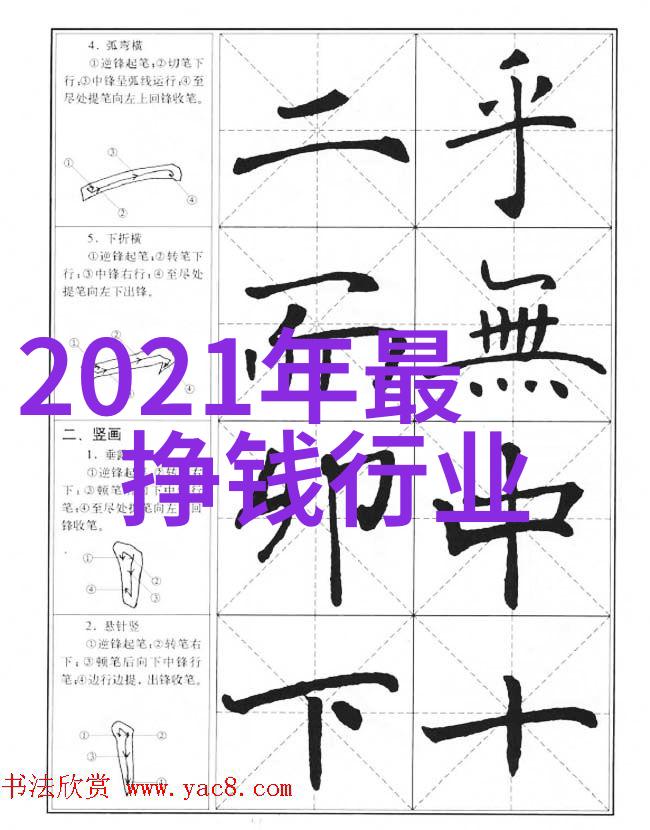 4. 弧弯横
①逆锋起笔;②切笔下
行;③中锋呈弧线运行;④至
尽处提笔向左上回锋收笔。
① ③ ② ④
二 乎
5. 下折横
①逆锋起笔;②转笔下
行;③中锋右行;④至尽处
提笔向左下出锋。
① ② ④
而 無
2021年最
挣钱行业
二、竖画
1. 垂
①逆锋起笔
下;③顿笔
笔;④至尽处提笔向左
锋收笔。
① ② ④ ③
卯 中
2. 悬针竖
①逆锋起笔;②转笔右
下;③顿笔后向下中锋行
笔;④边行边提,出锋收笔。
① ② ③ ④
下 十
书法欣赏 www.yac8.com